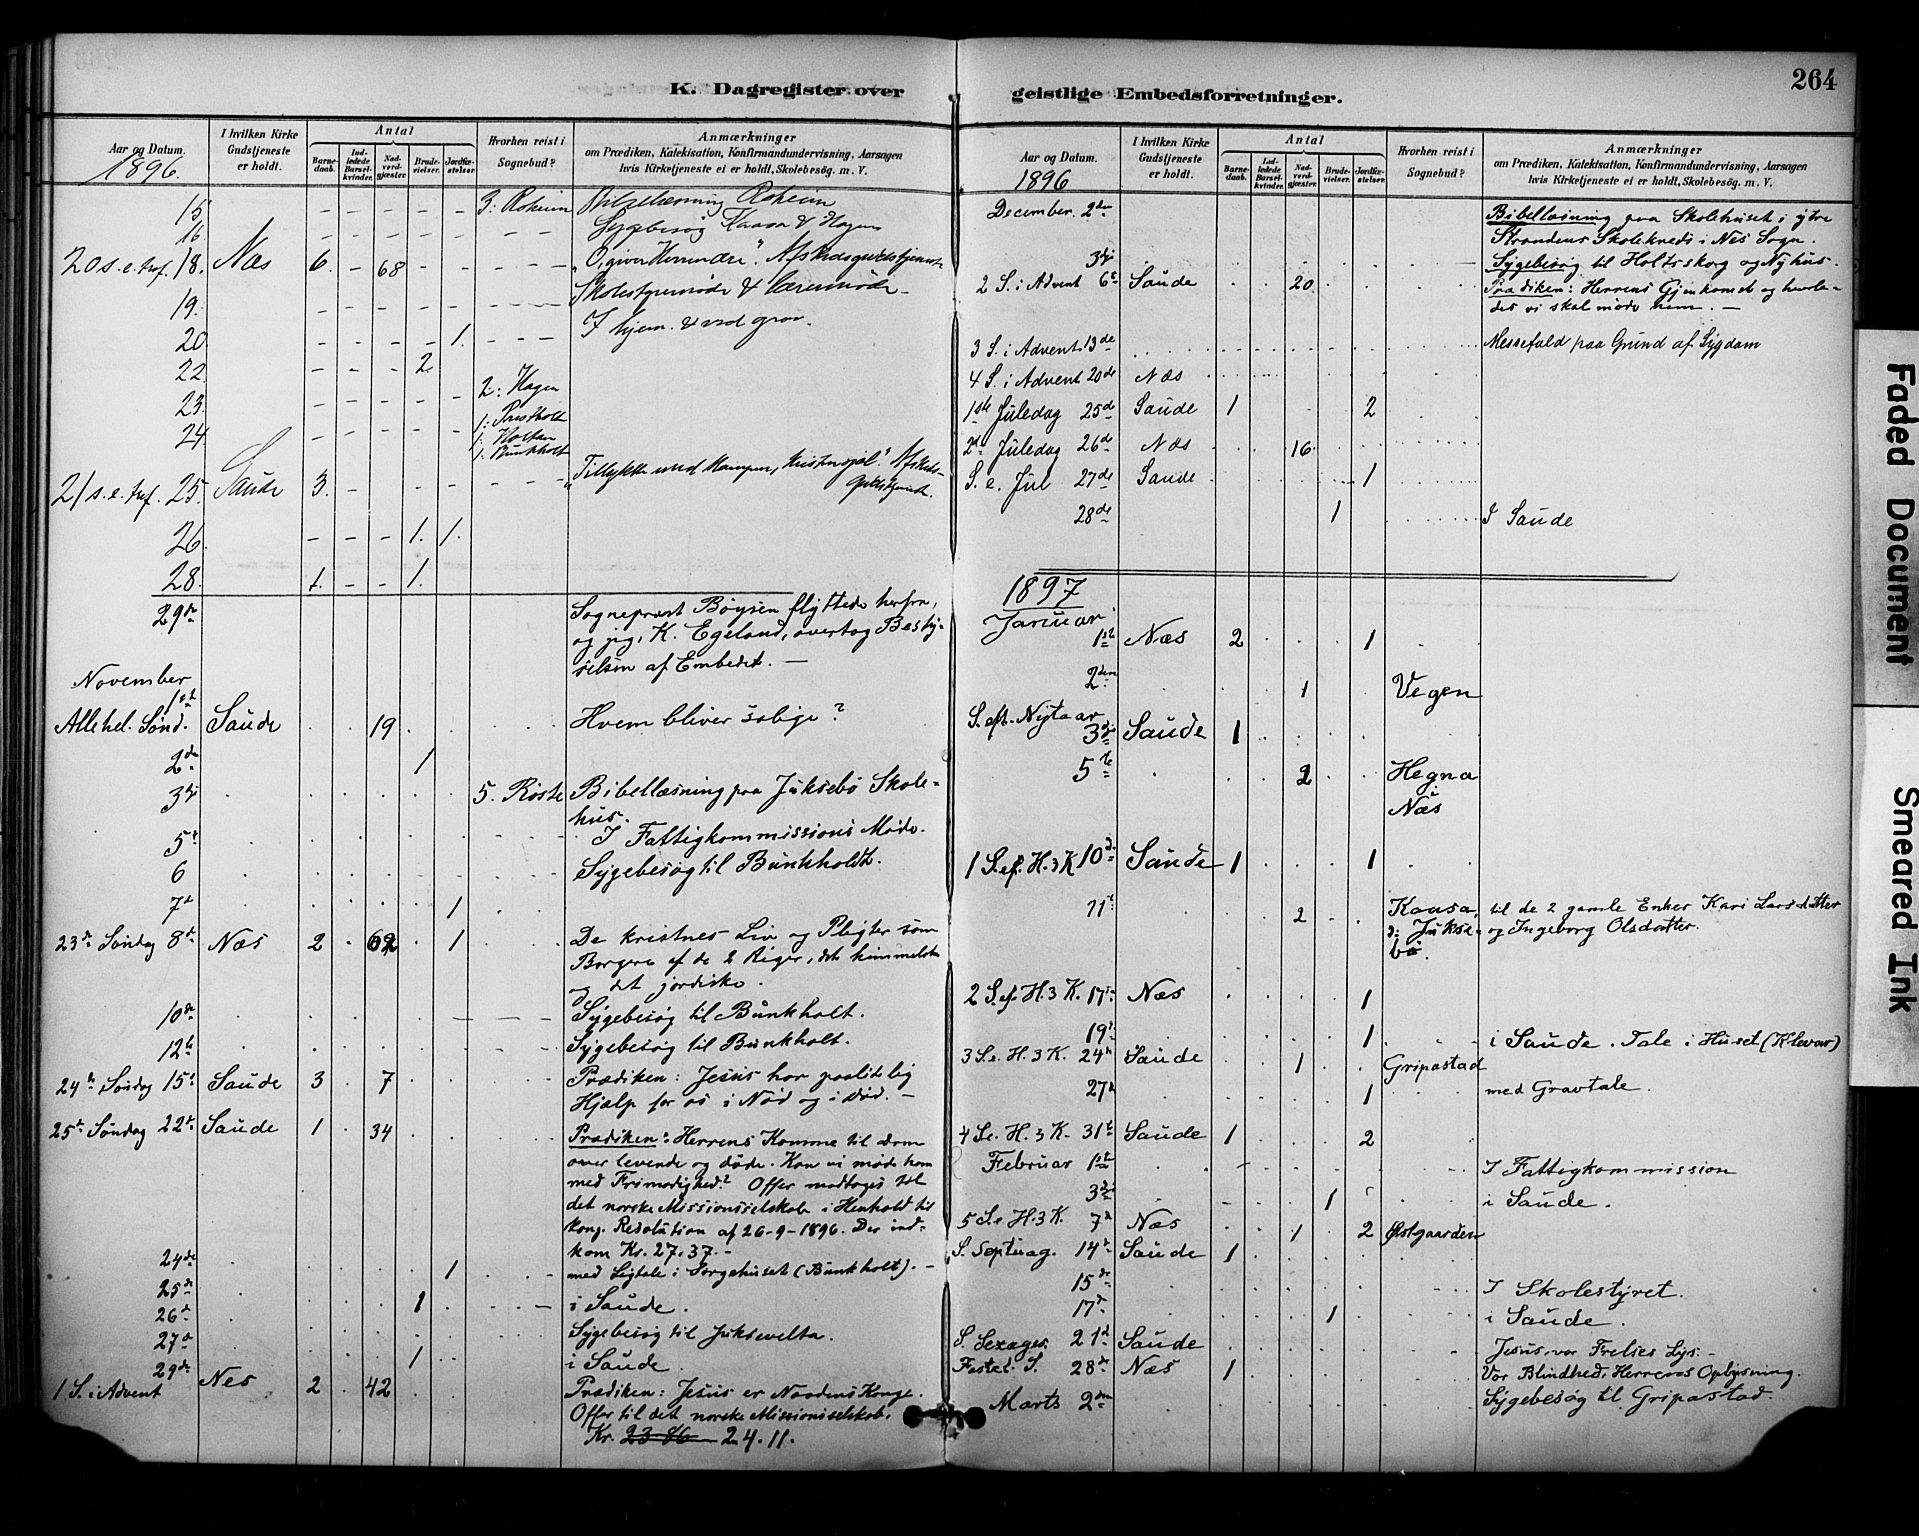 264
K. Dagregister over geistlige Embedsforretninger.
Aar og Datum.
1896.
I hvilken Kirke Gudstjeneste er holdt.
Antal
Barnedaab.
Indledede Barselkvinder.
Nadverdgjæster
Brudevielser.
Jordfæstelser
Hvorhen reist i Sognebud?
Anmærkninger
om Prædiken, Katekisation, Konfirmandundervisning, Aarsagen
hvis Kirketjeneste ei er holdt, Skolebesøg. m. V.
15 - - - - - 3: Roheim Bibellæsning Roheim
16. - - - - - - - - Sygebesøg Kaasa & Hagen
20 s. e. tref. 18. Næs 6. - 68 - - - - "O, giver Herren ære". Afskedsgudstjeneste
19. - - - - - Skolestyremøde & læremøde.
20 - - - - 1. - - - I hjem. & ved grav.
22 - - - 2
23. - - - - - 2: Hagen
24 - - - - - 1: Præstholt
1: Holtan
1. Bunkholt
21 s. e. tref. 25. Saude 3. - "Tillykke med Kampen, kristensjæl". Afskeds-
gudstjeneste.
26. - - - 1. 1.
28. 1. - - 1.
29de Sogneprest Böysen flyttede herfra,
og jeg, K. Egeland, overtog Besty-
relsen af Embedet. —
November
1ste
Allehel. Sønd. Saude 19 Hvem bliver salige?
2den 1
3die 5. Røste Bibellæsning paa Juksebö Skole-
hus.
5te I Fattigkommissions Möde.
6 Sygebesøg til Bunkholdt.
7de 1
23de Søndag 8de Næs 2 62 1 De kristnes Liv og Pligter som
Borgere af de 2 Riger, det himmelske
og det jordiske.
10de Sygebesøg til Bunkholt.
12te Sygebesøg til Bunkholt.
24de Søndag 15de Saude 3 7 Prædiken: Jesus har paalidelig
Hjælp for os i Nød og i død. —
25de Søndag 22de Saude 1 34 Prædiken: Herrens Komme til dom
over levende og døde. Kan vi møde ham
med Frimodighed? Offer modtoges til
det norske Missionsselskab i Henhold til
kong. Resolution af 26-9-1896. Der ind-
kom Kr. 27.37. -
24de 1 med Ligtale i Sørgehuset (Bunkholt). —
25de 1 i Saude.
26de Sygebesøg til Juksevelta.
27de 1 i Saude.
29de
1 S. i Advent Nes 2 42 Prædiken: Jesus er Naadens Konge.
Offer til det norske Missionsselskab.
Kr. 23.86 24.11.
Aar og Datum.
1896
I hvilken Kirke Gudstjeneste er holdt.
Antal
Barnedaab.
Indledede Barselkvinder.
Nadverdgjæster
Brudevielser.
Jordfæstelser
Hvorhen reist i Sognebud?
Anmærkninger
om Prædiken, Katekisation, Konfirmandundervisning, Aarsagen
hvis Kirketjeneste ei er holdt, Skolebesøg. m. V.
December. 2den Bibellæsning paa Skolehuset i ytre
Strandens Skolekreds i Nes Sogn.
3die Sygebesøg til Holtsskog og Nyhus.
2 S. i Advent 6te Saude 20 Prædiken: Herrens Gjenkomst og hvorle-
des vi skal møde ham. —
3 S. i Advent 13de Messefald paa Grund af Sygdom
4 S. i Advent 20de Næs
1ste Juledag 25de Saude 1 2
2d. Juledag 26de Næs 16
S. e. Jul 27de Saude 1
28de 1 I Saude
1897
Januar
1ste Næs 2 1
2den 1 Vegen
S. eft. Nytaar
3die Saude 1
5te 2 Hegna
i
Næs
1 S. ef. H. 3 K 10de Saude 1 1
11te 2 Kaasa, til de 2 gamle Enker Kari Larsdatter
Jukse- og Ingeborg Olsdatter.
bö.
2 S. ef. H. 3 K. 17de Næs 1
19de 1 i Saude. Tale i Huset (Klevar)
3 S. e. H. 3 K. 24de Saude 1 Gripastad
27de 1 med Gravtale.
4 S. e. H. 3 K. 31te Saude 1 2
Februar 1ste I Fattigkommission
3die 1 i Saude.
5 S. e. H. 3 K. 7de Næs 1 2 Østgaarden
S. Septuag. 14de Saude 1
15de I Skolestyret.
17de 1 i Saude.
S. Sexages. 21de Saude Jesus, vor Frelses Lys. —
Fastel. S. 28de Næs 1 Vor Blindhed, Herrens Oplysning.
Marts 2den Sygebesøg til Gripastad.
Faded Document
Smeared Ink